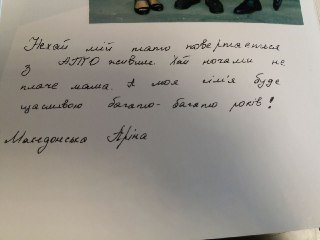 Нехай мій тато повертається
з АТО живим. Хай ночами не
плаче мама. А моя сім'я буде
щасливою багато-багато років!
Македонська Аріна